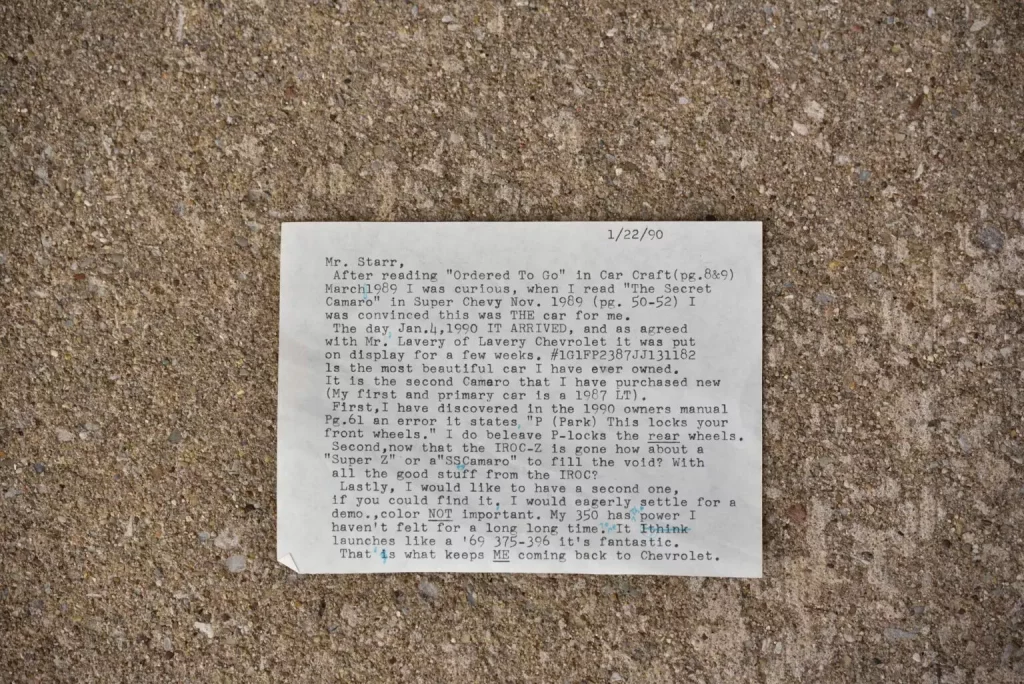 1/22/90
Mr. Starr,
After reading "Ordered To Go" in Car Craft(pg.8&9)
March1989 I was curious, when I read "The Secret
Camaro" in Super Chevy Nov. 1989 (pg. 50-52) I
was convinced this was THE car for me.
The day Jan.4,1990 IT ARRIVED, and as agreed
with Mr. Lavery of Lavery Chevrolet it was put
on display for a few weeks. #1G1FP2387JJ131182
Is the most beautiful car I have ever owned.
It is the second Camaro that I have purchased new
(My first and primary car is a 1987 LT).
First,I have discovered in the 1990 owners manual
Pg.61 an error it states "P (Park) This locks your
front wheels." I do beleave P-locks the rear wheels.
Second,now that the IROC-Z is gone how about a
"Super Z" or a"SSCamaro" to fill the void? With
all the good stuff from the IROC?
Lastly, I would like to have a second one,
if you could find it, I would eagerly settle for a
demo.,color NOT important. My 350 has power I
haven't felt for a long long time. It Ithink
launches like a '69 375-396 it's fantastic.
That is what keeps ME coming back to Chevrolet.